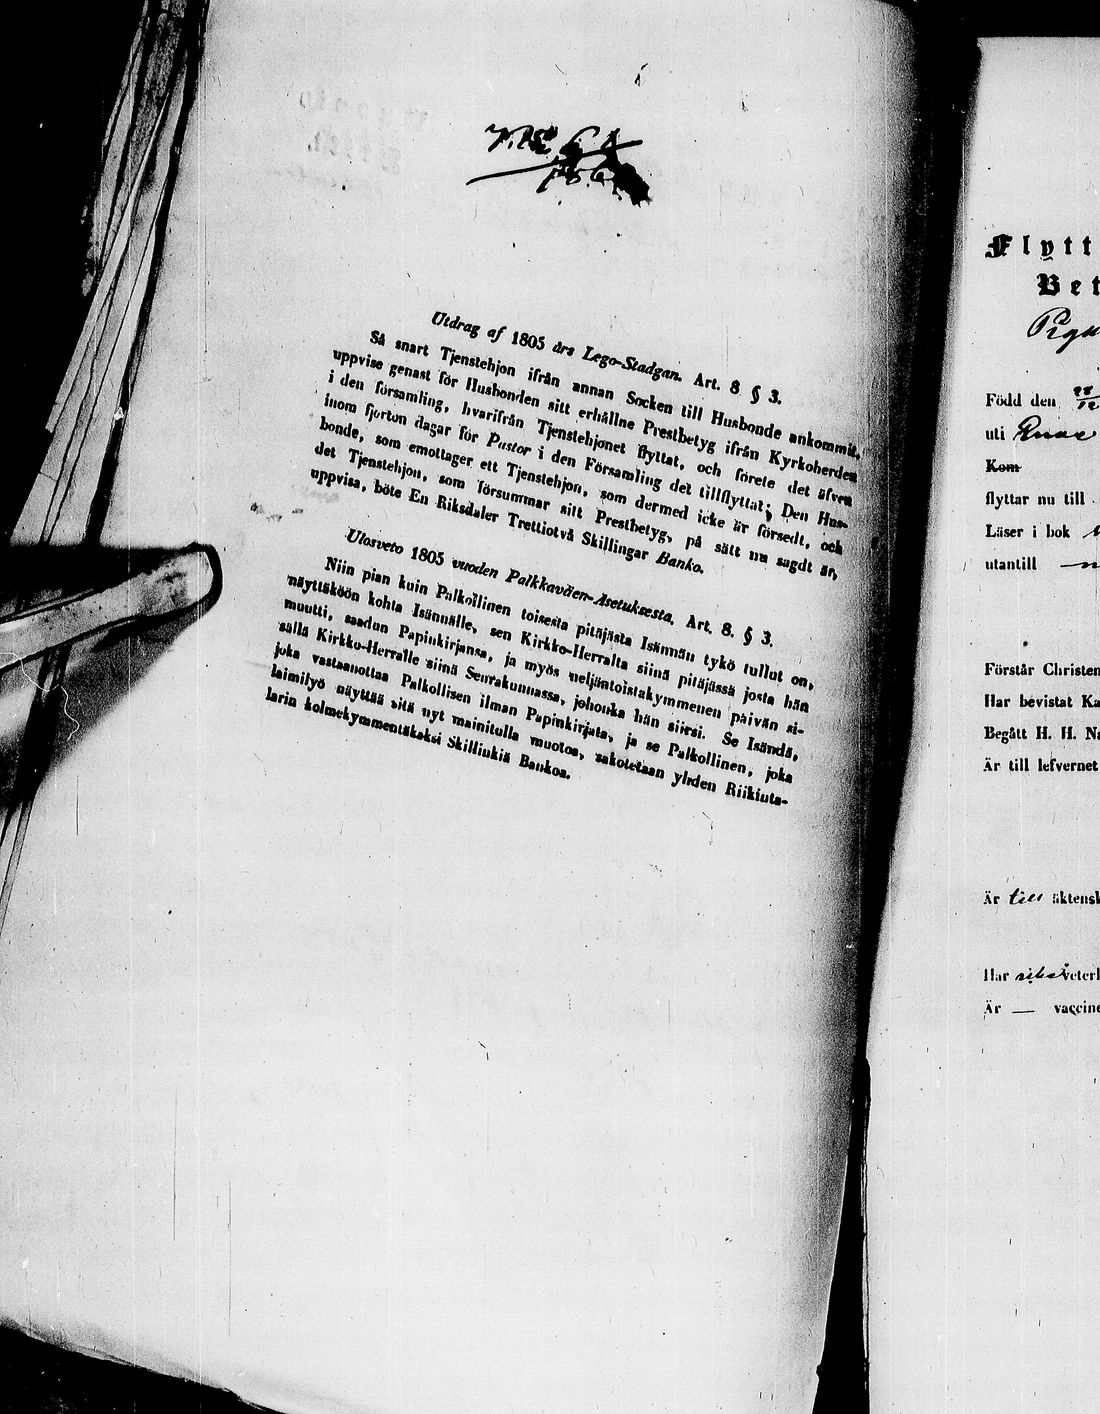 Utdrag af 1805 års Lego-Stadgan. Art. 8 § 3.
Så snart Tjenstehjon ifrån annan Socken till Husbonde ankommit,
uppvise genast för Husbonden sitt erhållne Prestbetyg ifrån Kyrkoherden
i den församling, hvarifrån Tjenstehjonet flyttat, och förete det äfven
inom fjorton dagar för Pastor i den Församling det tillflyttat; Den Hus-
bonde, som emottager ett Tjenstehjon, som dermed icke är försedt, och
det Tjenstehjon, som försummar sitt Prestbetyg, på sätt nu sagdt är,
uppvisa, böte En Riksdaler Trettiotvå Skillingar Banko.
Ulosveto 1805 vuoden Palkkaväen-Asetuksesta. Art. 8. § 3.
Niin pian kuin Palkollinen toisesta pitäjästä Isännän tykö tullut on,
näyttäköön kohta Isännälle, sen Kirkko-Herralta siinä pitäjässä josta hän
muutti, saadun Papinkirjansa, ja myös neljäntoistakymmenen päivän si-
sällä Kirkko-Herralle siinä Seurakunnassa, johonka hän siirsi. Se Isändä,
joka vastaanottaa Palkollisen ilman Papinkirjata, ja se Palkollinen, joka
laimilyö näyttää sitä nyt mainitulla muotoa, sakotetaan yhden Riikinta-
larin kolmekymmentäkaksi Skillinkiä Bankoa.
Flytt
Bet
Född den
uti
Kom
flyttar nu till
Läser i bok
utantill
Förstår Christen
Har bevistat Ka
Begått H. H. Na
Är till lefvernet
Är till äktensk
Har veterl
Är — vaccine